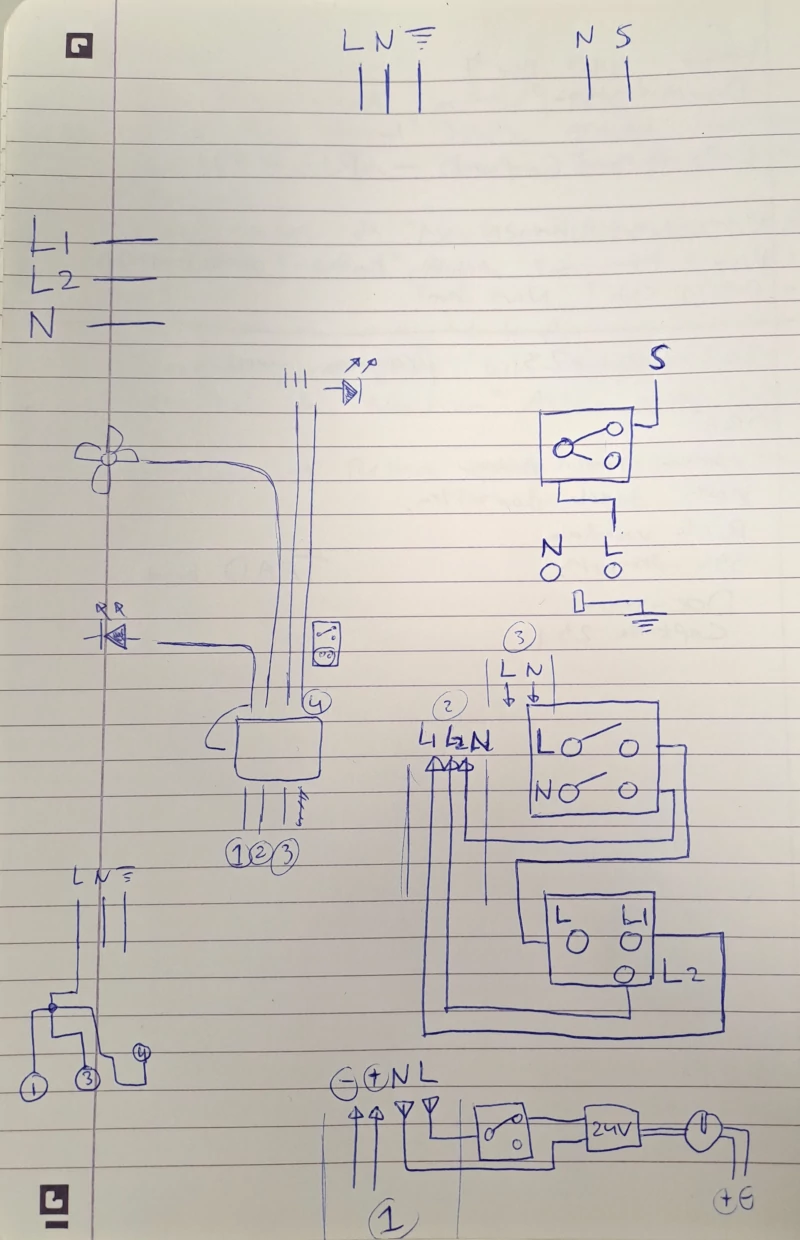 L N
N S
L1
L2
N
S
N L
4
3
L N
2
L1 L2 N
L
N
1 2 3
L N
L L1
L2
4
1 3
- + N L
24V
+ -
1